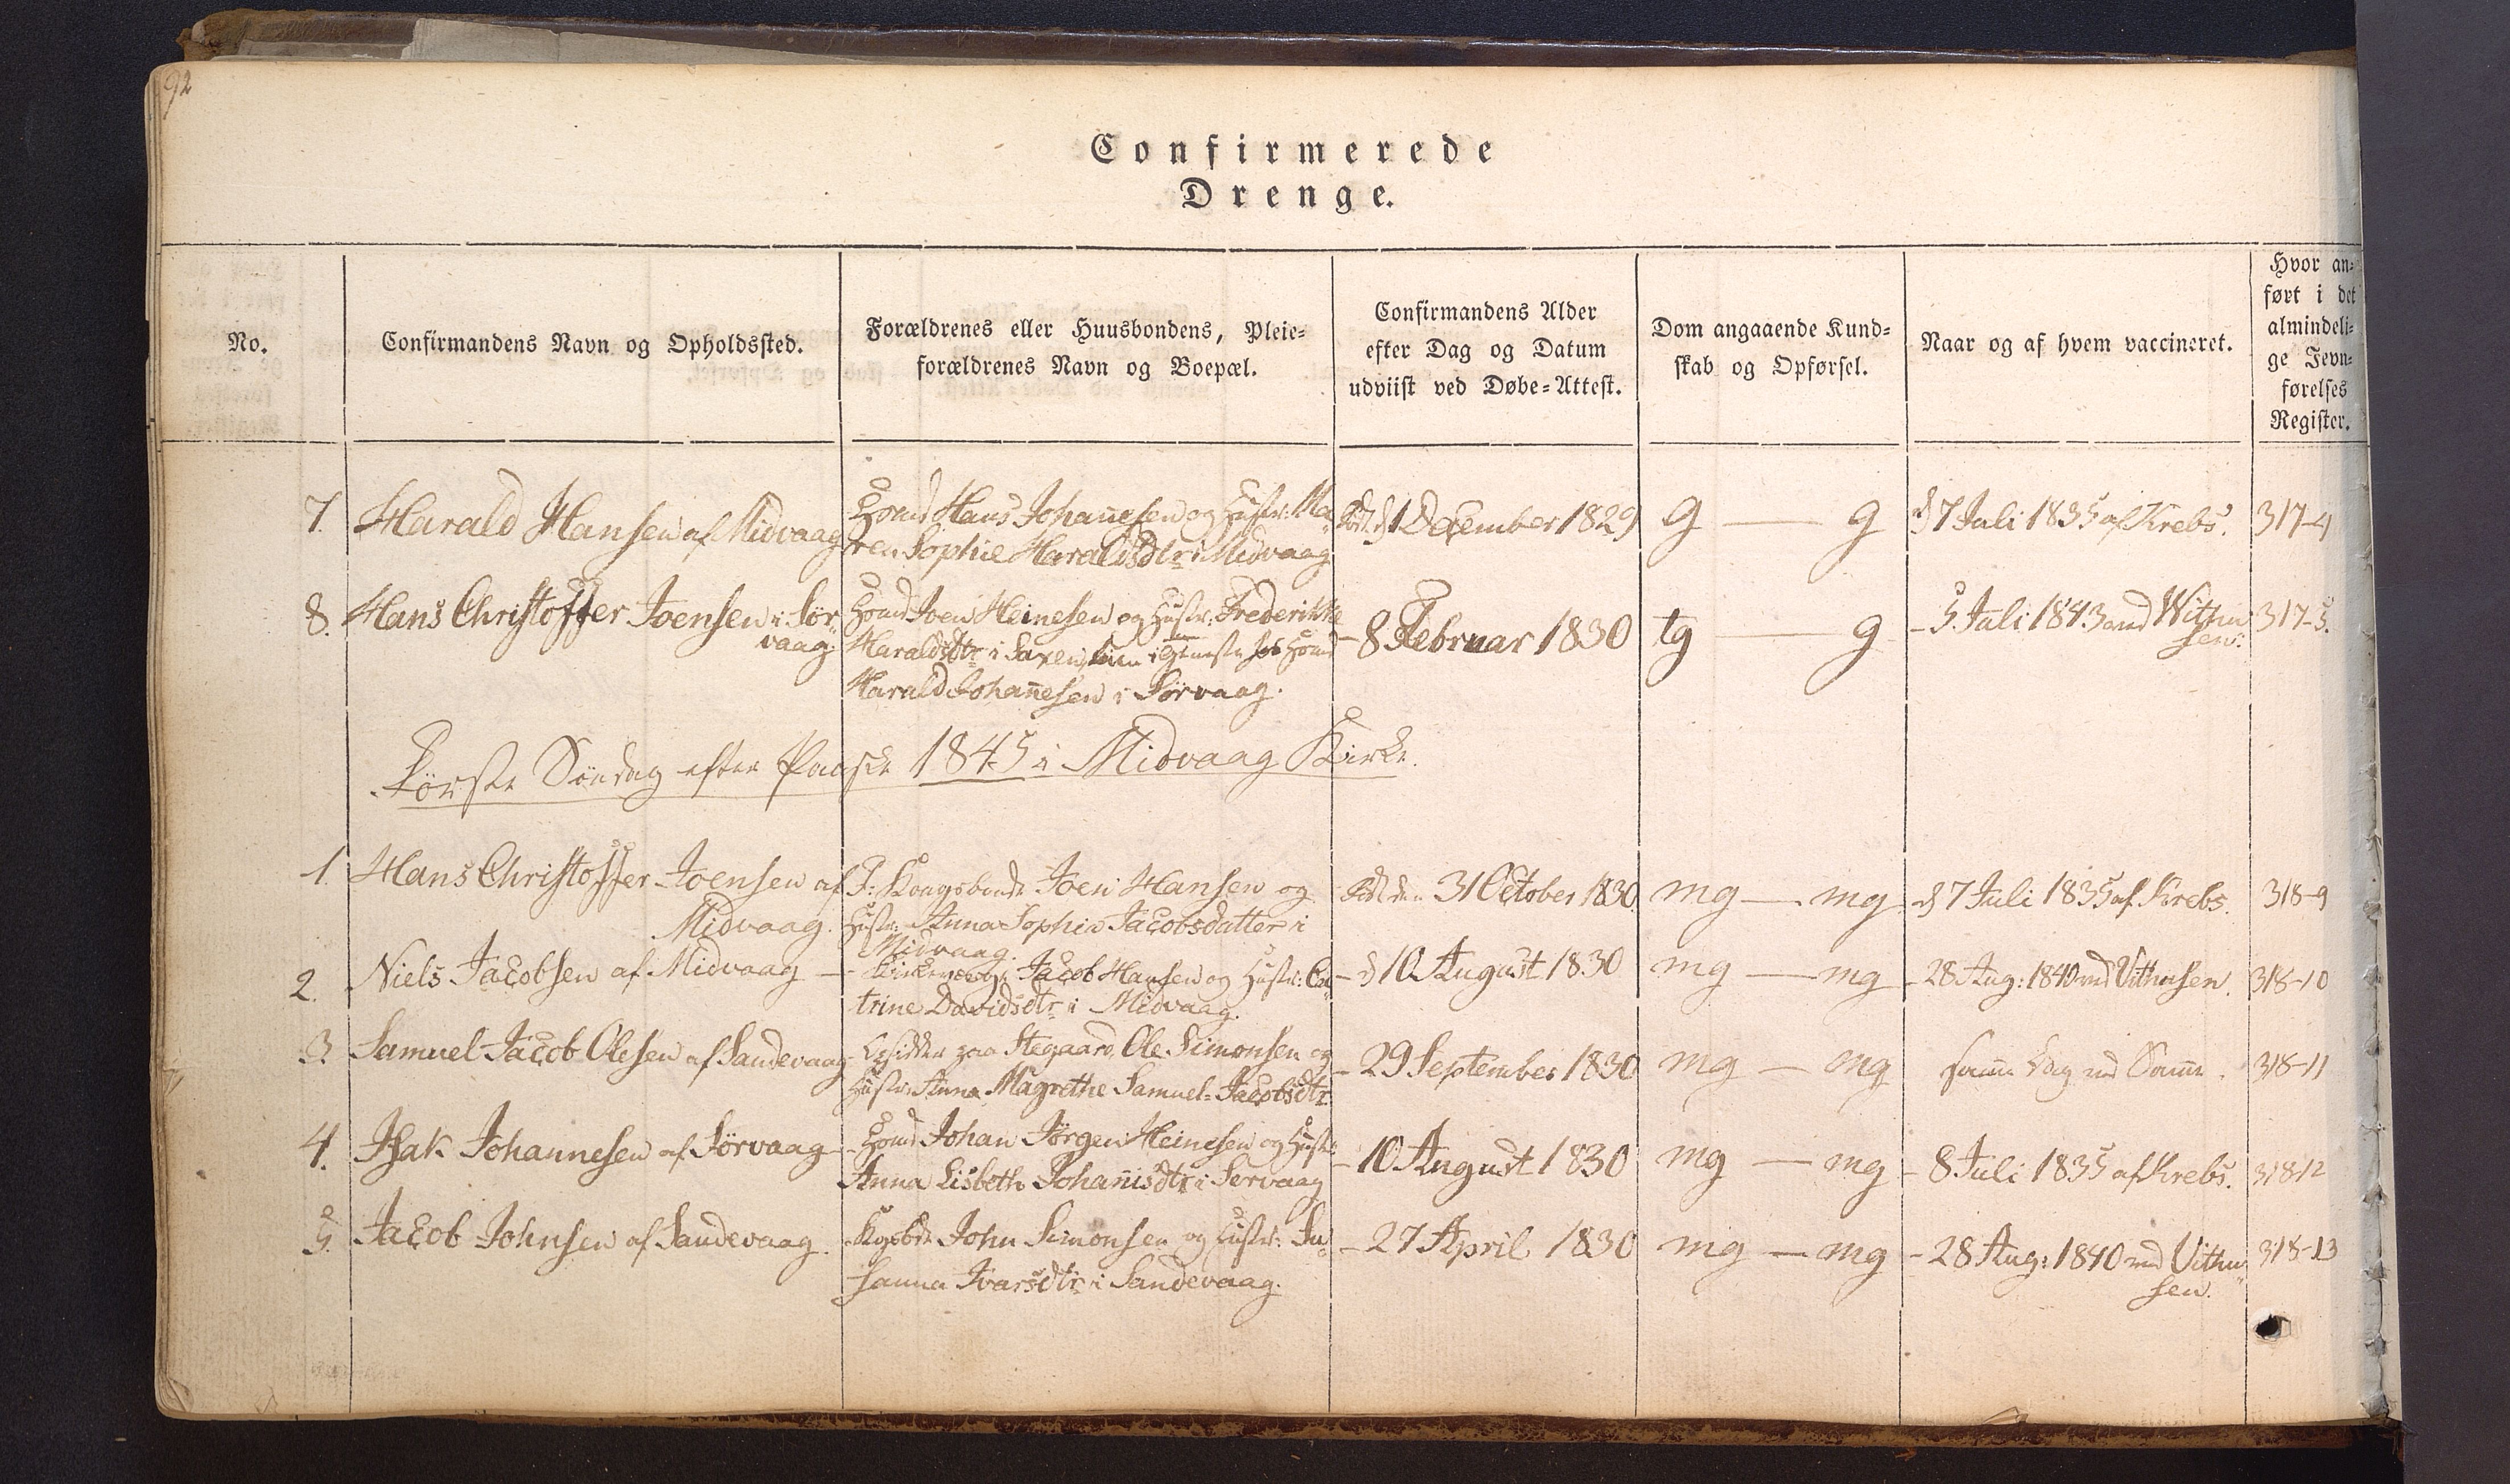 92
Confirmerede
Drenge.
No.
Confirmandens Navn og Opholdssted.
Forældrenes eller Huusbondens, Pleie=
forældrenes Navn og Boepæl.
Confirmandens Alder
efter Dag og Datum
udviist ved Døbe=Attest.
Dom angaaende Kund=
skab og Opførsel.
Naar og af hvem vaccineret.
Hvor an=
ført i det
almindeli=
ge Jevn=
førelses
Register.
7. Harald Hansen af Midvaag
Hans Johannesen og Hustr: Ma=
ren Sophie Haraldsdtr i Midvaag
født d 1 December 1829
g — g
d 7 Juli 1835 af Krebs.
317-4
8. Hans Christoffer Joensen i Sør=
vaag.
Joen Heinesen og Hustr: Frederikke
Haraldsdtr i Saxen, tien i Tieneste hos
Harald Johannesen i Sørvaag.
- 8 Februar 1830
tg — g
- 5 Juli 1843 ved Withu
sen:
317-5.
Første Søndag efter Paaske 1845 i Midvaag Kirke.
1. Hans Christoffer Joensen af
Midvaag.
F: Kongsbonde Joen Hansen og
Hustr: Anna Sophia Jacobsdatter i
Midvaag.
født den 31 October 1830.
mg — mg
d 7 Juli 1835 af Krebs.
318-9
2. Niels Jacobsen af Midvaag
- Kirkeværge Jacob Hansen og Hustr: Ca=
trine Davidsdtr i Midvaag.
- d 10 August 1830
mg — mg
- 28 Aug: 1840 ved Vithusen.
318-10
3. Samuel Jacob Olesen af Sandevaag
- Opsidder paa Stegaard, Ole Simonsen og
Hustr: Anna Magrethe Samuel=Jacobsdtr.
- 29 September 1830
mg — mg
samme Dag ved Samme.
318-11
4. Isak Johannesen af Sørvaag
- Johan Jörgen Heinesen og Hustr:
Anna Lisbeth Johannisdtr i Servaag
- 10 August 1830
mg — mg
- 8 Juli 1835 af Krebs.
318-12
5. Jacob Johnsen af Sandevaag.
- Kgsbde John Simonsen og Hustr: Su=
sanna Ivarsdtr i Sandevaag.
- 27 April 1830
mg — mg
- 28 Aug: 1840 ved Vithu=
sen.
318-13